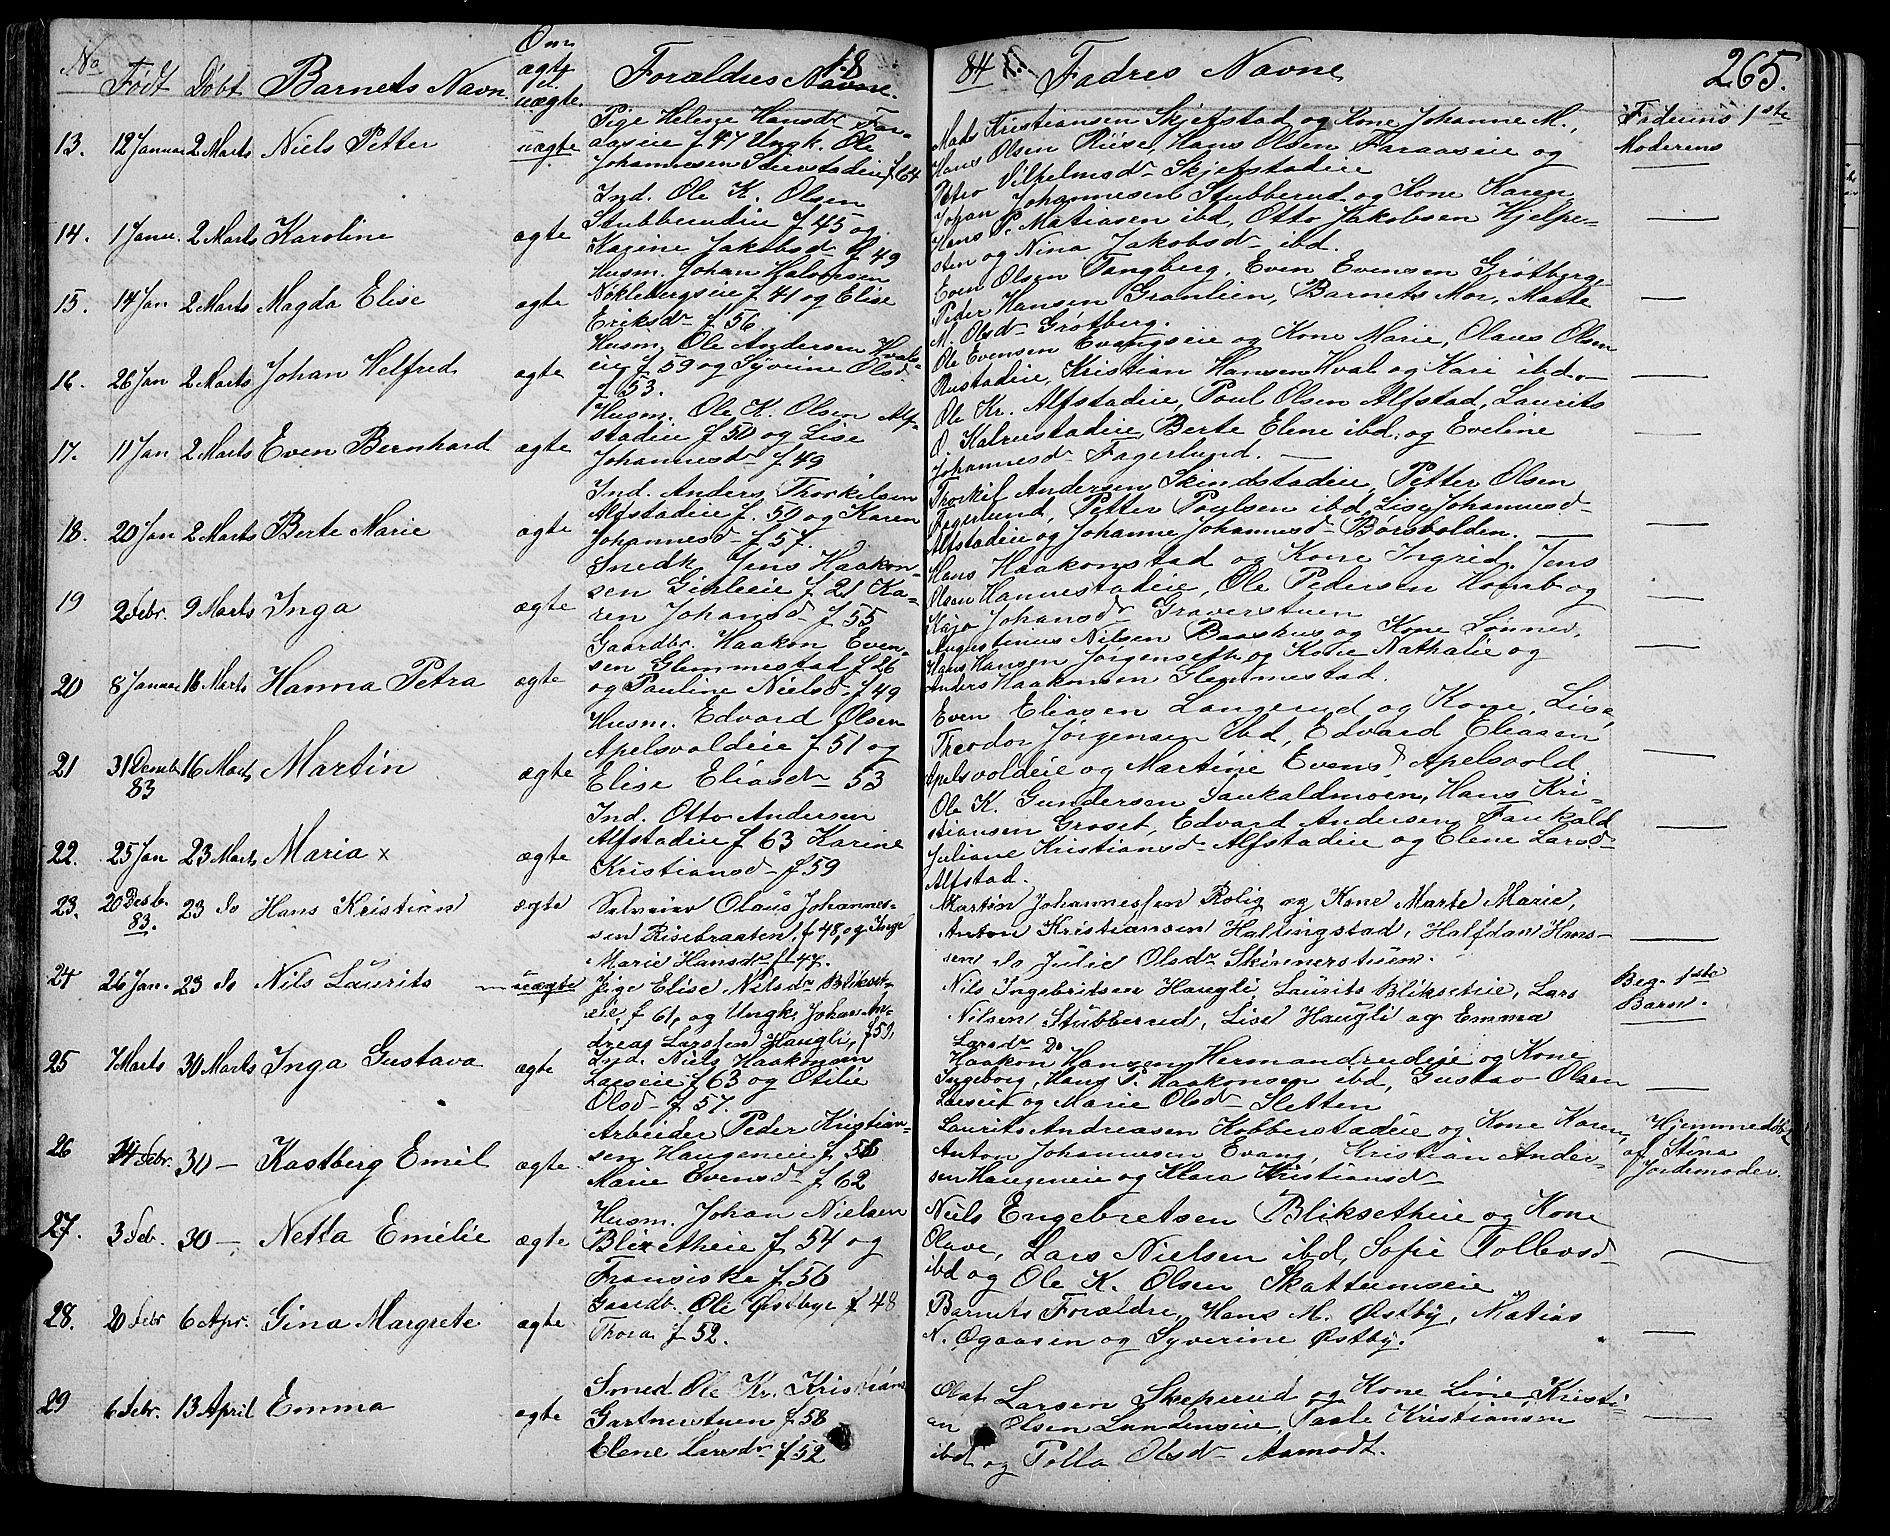 No Født Døbt Barnets Navn. Om ægte el. uægte. Forældres Navne. 18
84 Fadres Navne 265.
13. 12 Januar 2 Marts Niels Petter uægte Pige Helene Hansdr Faraaseie f 47 Ungk. Ole
Johannesen Stenstadeie f 64
Mads Kristiansen Skjefstad og Kone Johanne M.,
Hans Olsen Riise, Hans Olsen Faraaseie og
Petro Vilhelmsdr Skjefstadeie
Faderens 1ste
Moderens —
14. 1 Janu. 2 Marts Karoline ægte Ind. Ole K. Olsen
Stubberudeie f 45 og
Karine Jakobsdr f 49
Johan Johannesen Stubberud og Kone Karen
Hans P. Matiasen ibd, Otto Jakobsen Hjelpe-
sten og Nina Jakobsdr ibd.
15. 14 Jan 2 Marts Magda Elise ægte Husm. Johan Halvorsen
Nøklebergseie f 41 og Elise
Eriksdr f 56
Even Olsen Tangberg, Even Evensen Grøtberg,
Peder Hansen Granlien, Barnets Mor, Marte
M. Olsdr Grøtberg.
16. 26 Jan 2 Marts Johan Helfred ægte Husm. Ole Andersen Hvals-
eie f 59 og Syverine Olsdr
f 53.
Ole Evensen Evangseie og Kone Marie, Olaus Olsen
Rustadeie, Kristian Hansen Hval og Kari ibd.
17. 11 Jan 2 Marts Even Bernhard ægte Husm. Ole K. Olsen Alf-
stadeie f 50 og Lise
Johannesdr f 49
Ole Kr. Alfstadeie, Poul Olsen Alfstad, Laurits
O. Kalrustadeie, Berte Elene ibd. og Eveline
Johannesdr Fagerlund. —
18. 20 Jan 2 Marts Berte Marie ægte Ind. Anders Thorkilsen
Alfstadeie f. 50 og Karen
Johannesdr f 57.
Thorkil Andersen Skindstadeie, Petter Olsen
Fagerlund, Petter Poulsen ibd, Lise Johannesdr
Alfstadeie og Johanne Johannesdr Børsvolden. —
19 2 Febr. 9 Marts Inga ægte Snedk. Jens Haakon-
sen Ginleeie f 21 Ka-
ren Johansdr f 55
Hans Haakonstad og Kone Ingrid, Jens
Olsen Hannestadeie, Ole Pedersen Homb og
Kajo Johansdr Graverstuen
20 8 Januar 16 Marts Hanna Petra ægte Gaardbr. Haakon Even-
sen Glemmestad f 26
og Pauline Nielsdr f 49
Augustinus Nilsen Baashus og Kone Lønner,
Hans Hansen Jørgensethr og Kone Nathalie og
Anders Haakonsen Glemmestad.
21 31 Decmb 83 16 Marts Martin ægte Husm. Edvard Olsen
Apelsvoldeie f 51 og
Elise Eliasdr 53
Even Eliasen Langerud og Kone, Lise,
Theodor Jørgensen ibd, Edvard Eliasen
Apelsvoldeie og Martine Evensdr Apelsvold.
22. 25 Jan 23 Marts Maria x ægte Ind. Otto Andersen
Alfstadeie f 63 Karine
Kristiansdr f 59
Ole K. Gundersen Saukaldmoen, Hans Kri-
stiansen Groset, Edvard Andersen Faukald
Juliane Kristiansdr Alfstadeie og Elene Larsdr
Alfstad.
23. 20 Desbr. 83. 23 do Hans Kristian ægte Selveier Olaus Johannes-
sen Risebraaten, f 48, og Inge
Marie Hansdr f 47.
Martin Johannessen Rolig og Kone Marte Marie,
Anton Kristiansen Hallingstad, Halfdan Hans-
sen do Julie Olsdr Skinnerstuen.
24 26 Jan. 23 do Nils Laurits uægte Pige Elise Nilsdr Blikset-
eie, f 61, og Ungk. Johan An-
dreas Larssen Haugli, f 59,
Nils Ingebritsen Haugli Laurits Blikseteie, Lars
Nilsen Stubberud, Lise Haugli og Emma
Larsdr Do
Beg. 1ste
Barn.
25 7 Marts 30 Marts Inga Gustava ægte Ind. Niels Haakonsen
Larseie f 63 og Otilie
Olsdr f 57.
Haakon Hansen Hermandrudeie og Kone
Ingeborg, Hans P. Haakonsen ibd, Gustav Olsen
Larseie og Marie Olsdr Sletten
26 14 Febr. 30 — Kastberg Emil ægte. Arbeider Peder Kristian-
sen Haugeneie f 58
Marie Evensdr f 62
Laurits Andreasen Kobberstadeie og Kone Karen,
Anton Johannesen Evang, Kristian Ander-
sen Haugeneie og Klara Kristiansdr
Hjemmedøbt
af Stina
Jordemoder.
27. 3 Feb. 30 —. Netta Emilie ægte Husm. Johan Nielsen
Blixetheie f 54 og
Fransiske f 56
Niels Engebretsen Bliksetheie og Kone
Olave, Lars Nielsen ibd, Sofie Tollevsdr
ibd og Ole K. Olsen Skattumseie
28. 20 Febr 6 Apr. Gina Margrete ægte Gaardb. Ole Østbye f 48
Thora f 52.
Barnets Forældre, Hans M. Østby, Matias
N. Ogaasen og Syverine Østby.
29 6 Febr. 13 April Emma ægte Smed Ole Kr. Kristians
Gartnerstuen f 58
Elene Larsdr f 52
Olat Larsen Skeperud og Kone Line, Kristi-
an Olsen Lundenseie, Paale Kristiansen
ibd og Polla Olsdr Aamodt.